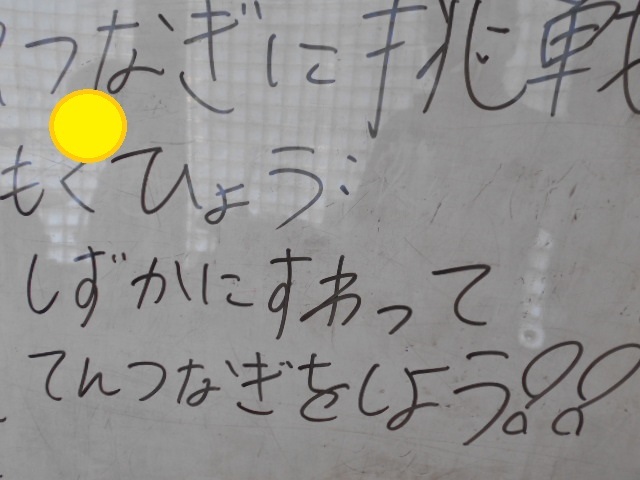 つなぎに挑戦
もくひょう：
しずかにすわって
てんつなぎをしよう!!